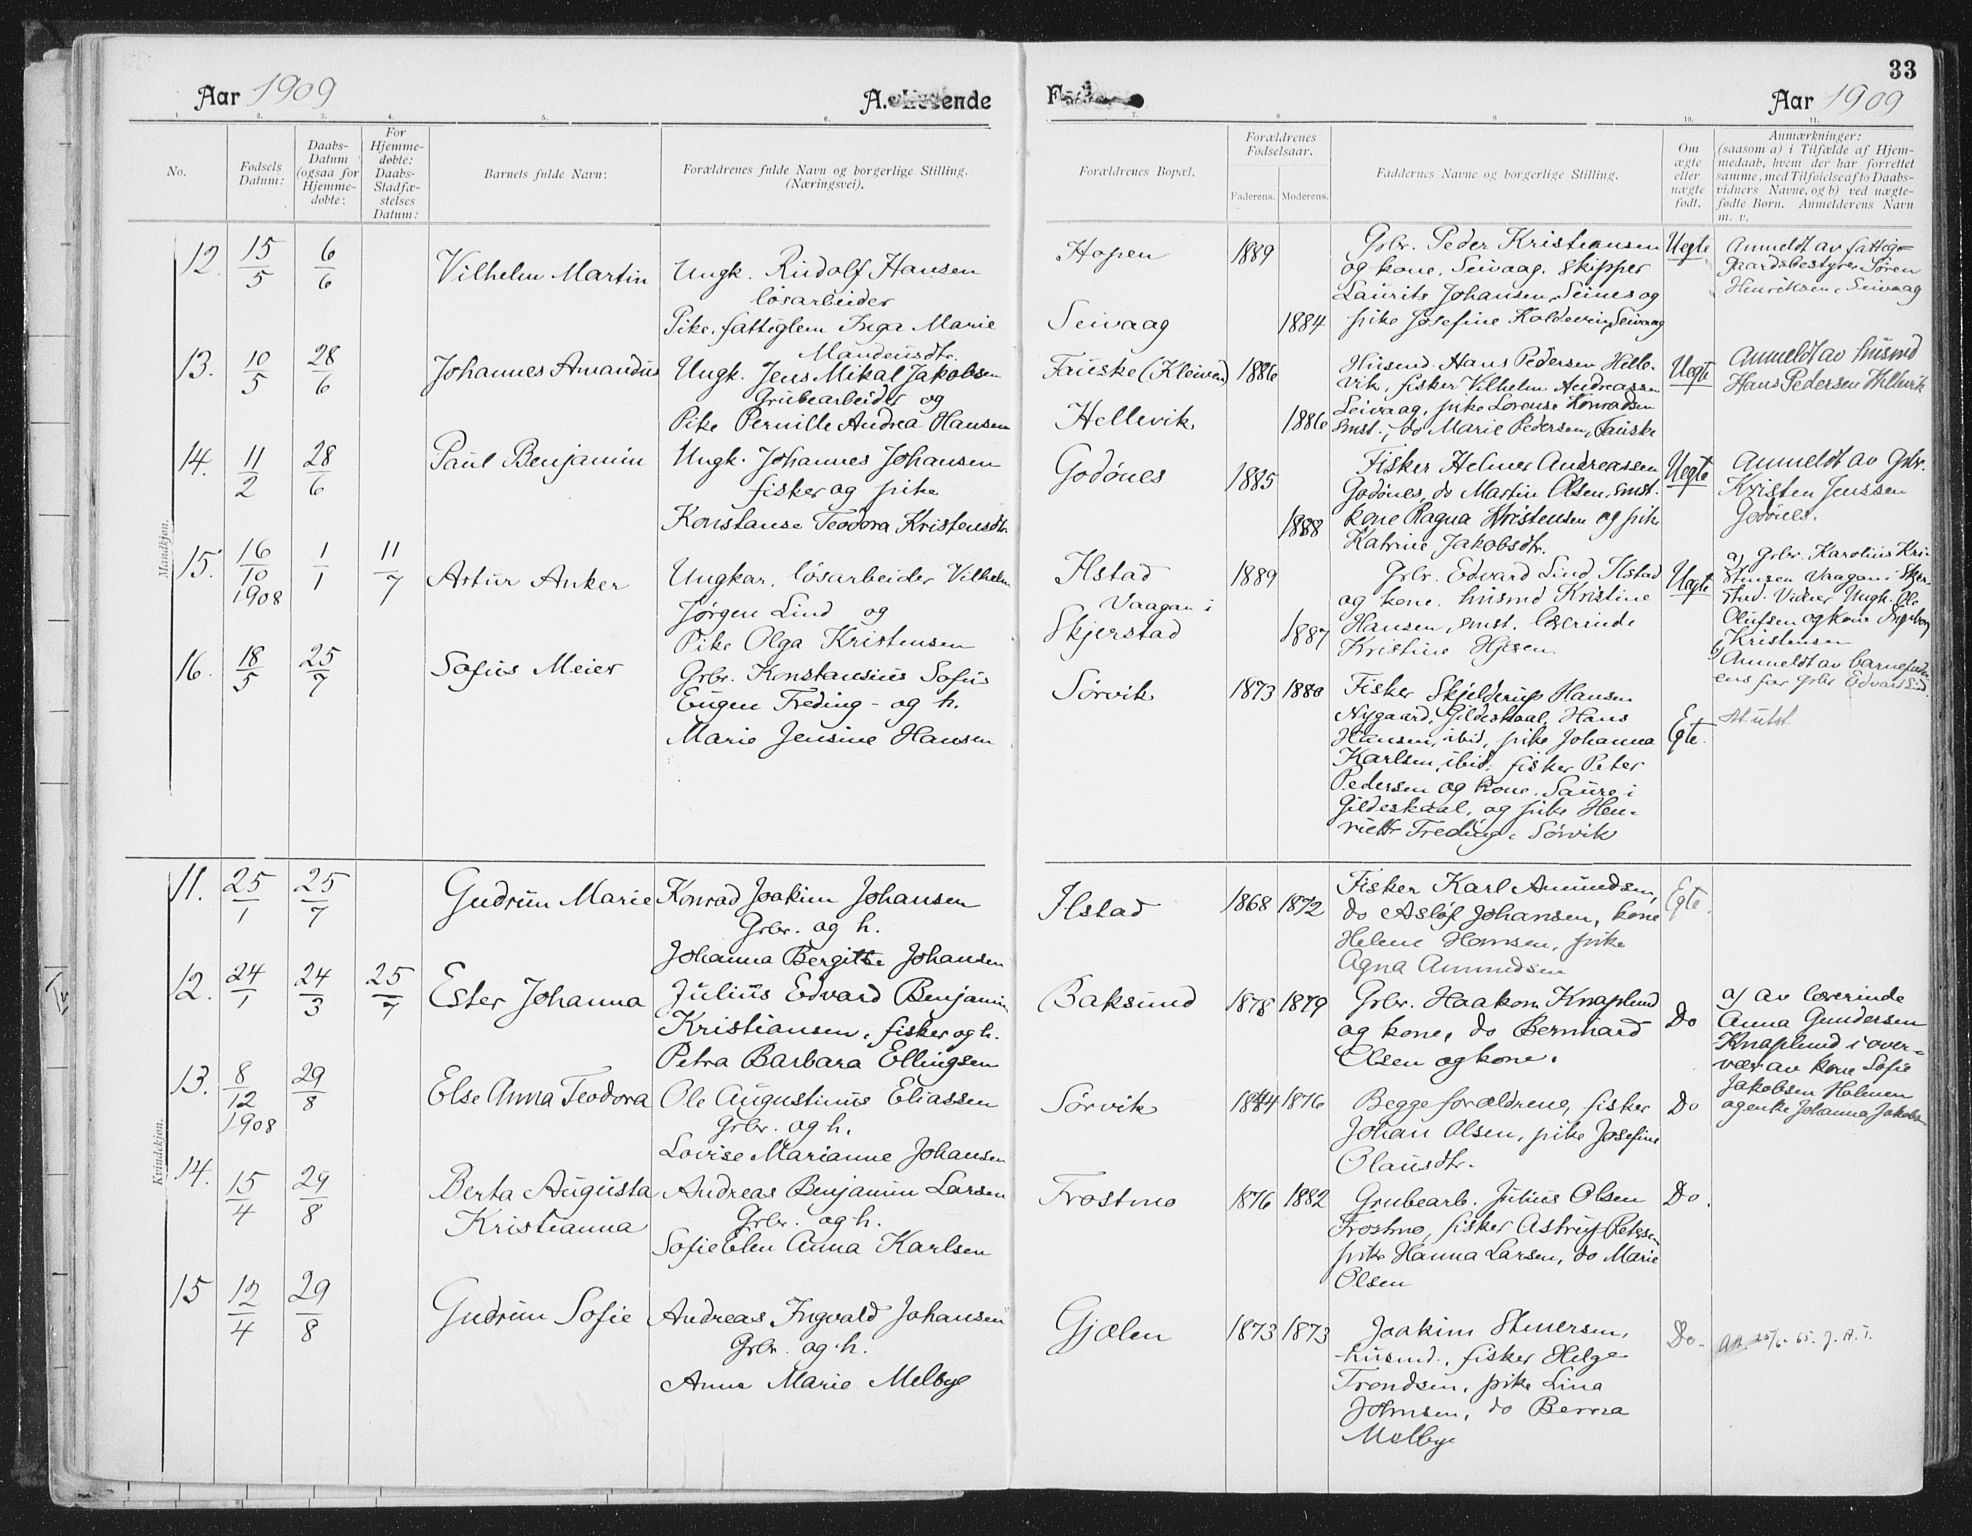 Aar 1909
33
Aar 1909
1. 2. 3. 4. 5. 6. 7. 8. 9. 10. 11.
No.
Fødsels Datum:
Daabs-Datum (ogsaa for Hjemme-døbte:
For Hjemme-døbte: Daabs-Stadfæ-stelses Datum:
Barnets fulde Navn:
Forældrenes fulde Navn og borgerlige Stilling. (Næringsvei).
Forældrenes Bopæl.
Forældrenes Fødselsaar.
Faderens. Moderens.
Faddernes Navne og borgerlige Stilling.
Om ægte eller uægte født.
Anmærkninger:
(saasom a) i Tilfælde af Hjem-
medaab, hvem der har forrettet
samme, med Tilføielse af to Daabs-
vidners Navne, og b) ved uægte-
fødte Børn. Anmelderens Navn
m. v.
Mandkjøn.
12. 15/5 6/6 Vilhelm Martin
Ungk. Rudolf Hansen
løsarbeider
Pike, fattiglem Inga Marie
Mandeusdtr.
Hopen 1889
Seivaag 1884
Grbr. Peder Kristiansen
og kone, Seivaag. Skipper
Laurits Johansen, Seines og
pike Josefine Koldevin, Seivaag
Uegte
Anmeldt av fattig=
gaardsbestyrer Søren
Henriksen, Seivaag
13. 10/5 28/6 Johannes Amandus
Ungk. Jens Mikal Jakobsen
Grubearbeider og
Pike Pernille Andrea Hansen
Fauske (Kleiven) 1886
Hellevik 1886
Husmd. Hans Pedersen Helle-
vik, fisker Vilhelm Andreassen
Seivaag, pike Lorense Konradsen
smst., do Marie Pedersen, Fauske
Uegte
Anmeldt av husmd
Hans Pedersen Hellevik
14. 11/2 28/6 Paul Benjamin
Ungk. Johannes Johansen
fisker og pike
Konstanse Teodora Kristensdtr.
Godönes 1885
1888
Fisker Helmer Andreassen
Godönes, do Martin Olsen, smst.
kone Ragna Kristensen og pike
Katrine Jakobsdtr.
Uegte
Anmeldt av Grbr.
Kristen Jenssen
Godönes.
15. 16/10 1908 1/1 11/7 Artur Anker
Ungkar, løsarbeider Vilhelm
Jörgen Lind og
Pike Olga Kristensen
Ilstad 1889
Vaagan i
Skjerstad 1887
Grbr. Edvard Lind, Ilstad
og kone. husmd Kristine
Hansen, smst. lærerinde
Kristine Hjesen.
Uegte
a) Grbr. Karolius Kri-
stensen Vaagan i Skjer-
stad. Vidner Ungk. Ole
Olufsen og kone Ingeborg
Kristensen
b) Anmeldt av barnefad-
ens far grbr Edvard Lind
16. 18/5 25/7 Sofus Meier
Grbr. Konstansius Sofus
Eugen Freding - og h.
Marie Jensine Hansen
Sörvik 1873 1880
Fisker Skjelderup Hansen
Nygaard, Gildeskaal, Hans
Hansen, ibid, pike Johanna
Karlsen, ibid. fisker Peter
Pedersen og kone. Saure i
Gildeskaal, og pike Hen-
riette Freding, Sörvik
Egte.
Kvindekjøn.
11. 25/1 25/7 Gudrun Marie
Konrad Joakim Johansen
Grbr. og h.
Johanna Bergitte Johansen
Ilstad 1868 1872
Fisker Karl Amundsen,
do Aslöf Johansen, kone
Helene Hansen, pike
Agna Amundsen
Egte.
12. 24/1 24/3 25/7 Ester Johanna
Julius Edvard Benjamin
Kristiansen, fisker og h.
Petra Barbara Ellingsen
Baksund 1878 1879
Grbr. Haakon Knaplund
og kone, do Bernhard
Olsen og kone.
Do
a) av lærerinde
Anna Gundersen
Knaplund i over=
vær av kone Sofie
Jakobsen Holmen
og enke Johanna Jakobsen
13. 8/12 1908 29/8 Else Anna Teodora
Ole Augustinus Eliassen
Grbr. og h.
Lovise Marianne Johansen
Sörvik 1876
Begge forældrene, fisker
Johan Olsen, pike Josefine
Olausdtr.
Do
14. 15/4 29/8 Berta Augusta
Kristianna
Andreas Benjamin Larsen
Grbr. og h.
Sofie Elen Anna Karlsen
Trostmo 1876 1882
Grubearb. Julius Olsen
Trostmo, fisker Astrup Petersen
pike Hanna Larsen, do Marie
Olsen
Do.
15 12/4 29/8 Gudrun Sofie
Andreas Ingvald Johansen
Grbr. og h.
Anna Marie Melbye
Gjælen 1873 1873
Joakim Steuersen,
husmd., fisker Helge
Trondsen, pike Lina
Johnsen, do Berna
Melbye
Do.